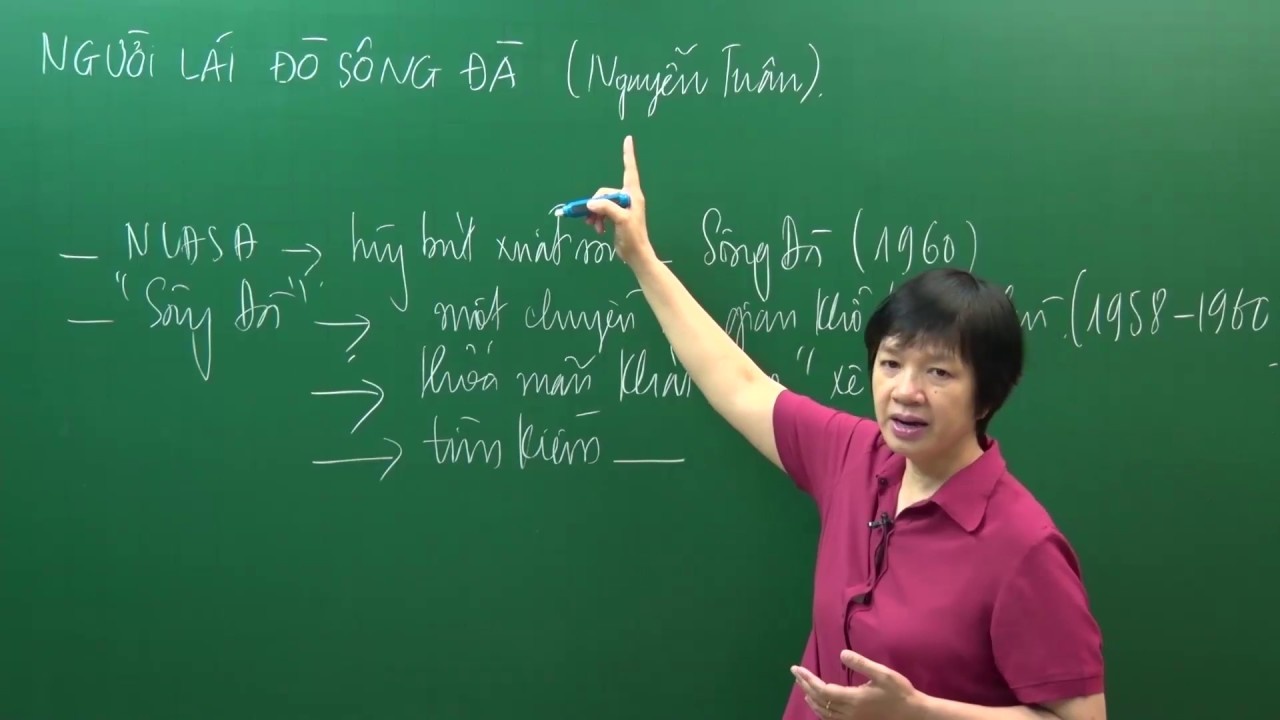 NGƯỜI LÁI ĐÒ SÔNG ĐÀ (Nguyễn Tuân).
— NLĐSĐ → tùy bút xuất Sông Đà (1960)
— "Sông Đà" → một chuyến gian khổ (1958-1960
→ thỏa mãn "xê
→ tìm kiếm —